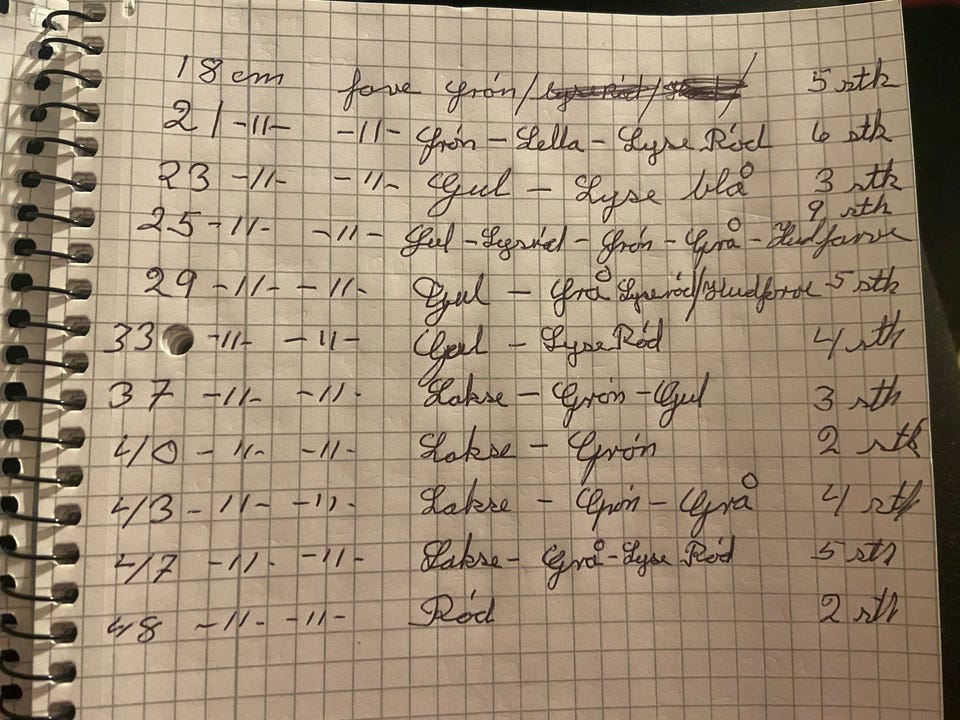 18 cm fave Grón/ 5 stk
21 -11- -11- Grón - Lella - Lyse Ród 6 stk
23 -11- -11- Gul - Lyse blå 3 stk
9 stk
25 -11- -11- Gul - Lysród - Grón - Grå - Hudfarve
29 -11- -11- Gul - Grå Lyseród/Hudfarve 5 stk
33 -11- -11- Gul - Lyse Ród 4 stk
37 -11- -11- Lakse - Grón - Gul 3 stk
40 -11- -11- Lakse - Grón 2 stk
43 -11- -11- Lakse - Grón - Grå 4 stk
47 -11- -11- Lakse - Grå - Lyse Ród 5 stk
48 -11- -11- Ród 2 stk